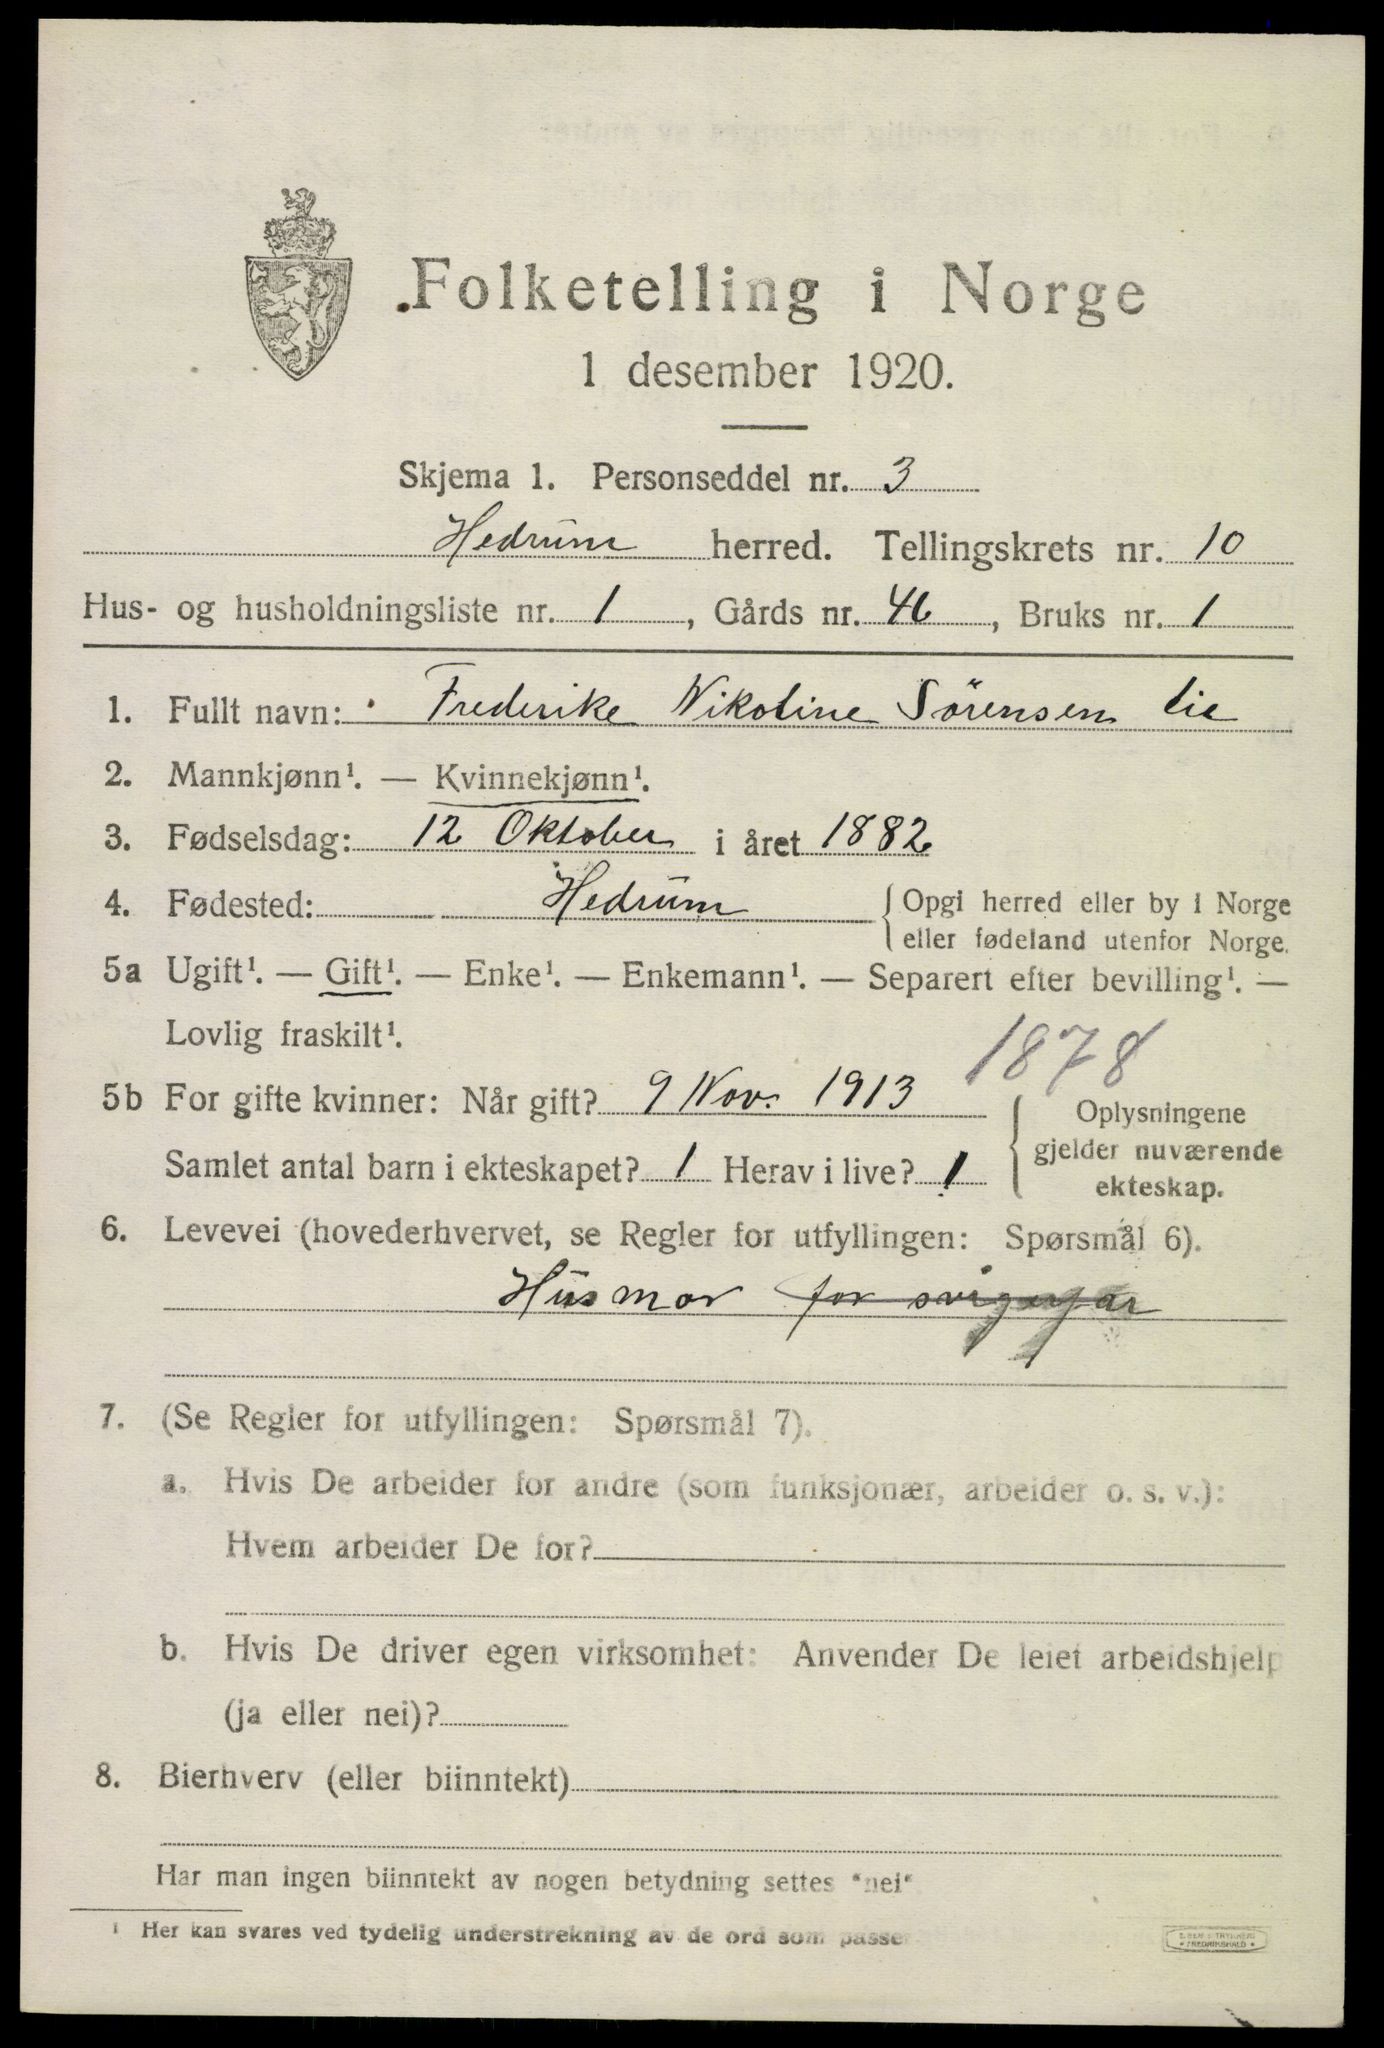 Folketelling i Norge
1 desember 1920.
Skjema 1. Personseddel nr. 3
Hedrum herred. Tellingskrets nr. 10
Hus- og husholdningsliste nr. 1, Gårds nr. 46, Bruks nr. 1
1. Fullt navn: Frederike Nikoline Sörensen Lie
2. Mannkjønn¹. — Kvinnekjønn¹.
3. Fødselsdag: 12 Oktober i året 1882
4. Fødested: Hedrum {Opgi herred eller by i Norge
eller fødeland utenfor Norge.
5a Ugift¹. — Gift¹. — Enke¹. — Enkemann¹. — Separert efter bevilling¹. —
Lovlig fraskilt¹.
1878
5b For gifte kvinner: Når gift? 9 Nov. 1913
Samlet antal barn i ekteskapet? 1 Herav i live? 1
{Oplysningene
gjelder nuværende
ekteskap.
6. Levevei (hovederhvervet, se Regler for utfyllingen: Spørsmål 6).
Husmor for svigerfar
7. (Se Regler for utfyllingen: Spørsmål 7).
a. Hvis De arbeider for andre (som funksjonær, arbeider o. s. v.):
Hvem arbeider De for?
b. Hvis De driver egen virksomhet: Anvender De leiet arbeidshjelp
(ja eller nei)?
8. Bierhverv (eller biinntekt)
Har man ingen biinntekt av nogen betydning settes "nei"
¹ Her kan svares ved tydelig understrekning av de ord som passer
FREDRIKSHALD